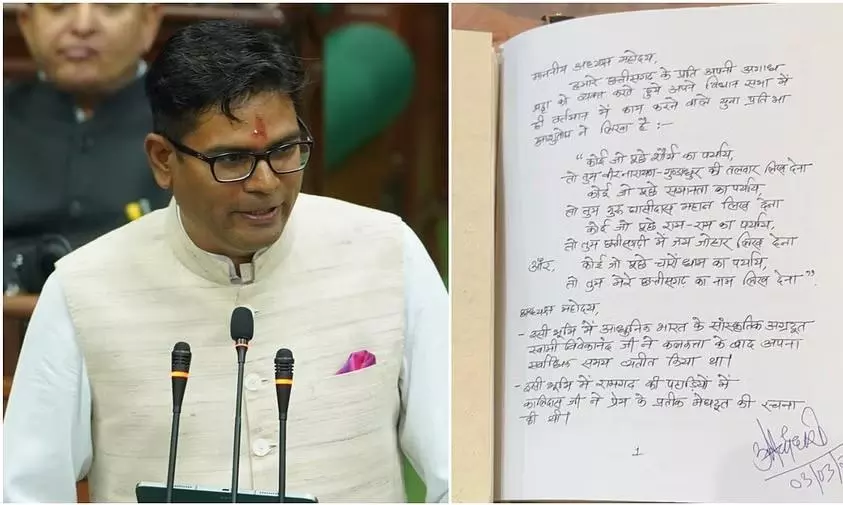 माननीय अध्यक्ष महोदय,
हमारे छत्तीसगढ़ के प्रति अपनी अगाध
श्रद्धा को व्यक्त करते हुये अपने विधान सभा में
ही वर्तमान में काम करने वाले युवा प्रतिभा
आशुतोष ने लिखा है :-
“कोई जो पूछे शौर्य का पर्याय,
तो तुम वीरनारायण-गुण्डाधुर की तलवार लिख देना
कोई जो पूछे समानता का पर्याय,
तो तुम गुरु घासीदास महान लिख देना
कोई जो पूछे राम-राम का पर्याय,
तो तुम छत्तीसगढ़ी में जय जोहार लिख देना
और, कोई जो पूछे चारों धाम का पर्याय,
तो तुम मेरे छत्तीसगढ़ का नाम लिख देना”.
अध्यक्ष महोदय,
- इसी भूमि में आधुनिक भारत के सांस्कृतिक अग्रदूत
स्वामी विवेकानंद जी ने कलकत्ता के बाद अपना
सर्वाधिक समय व्यतीत किया था।
- इसी भूमि में रामगढ़ की पहाड़ियों में
कालिदास जी ने प्रेम के प्रतीक मेघदूत की रचना
की थी।
1
03/03/